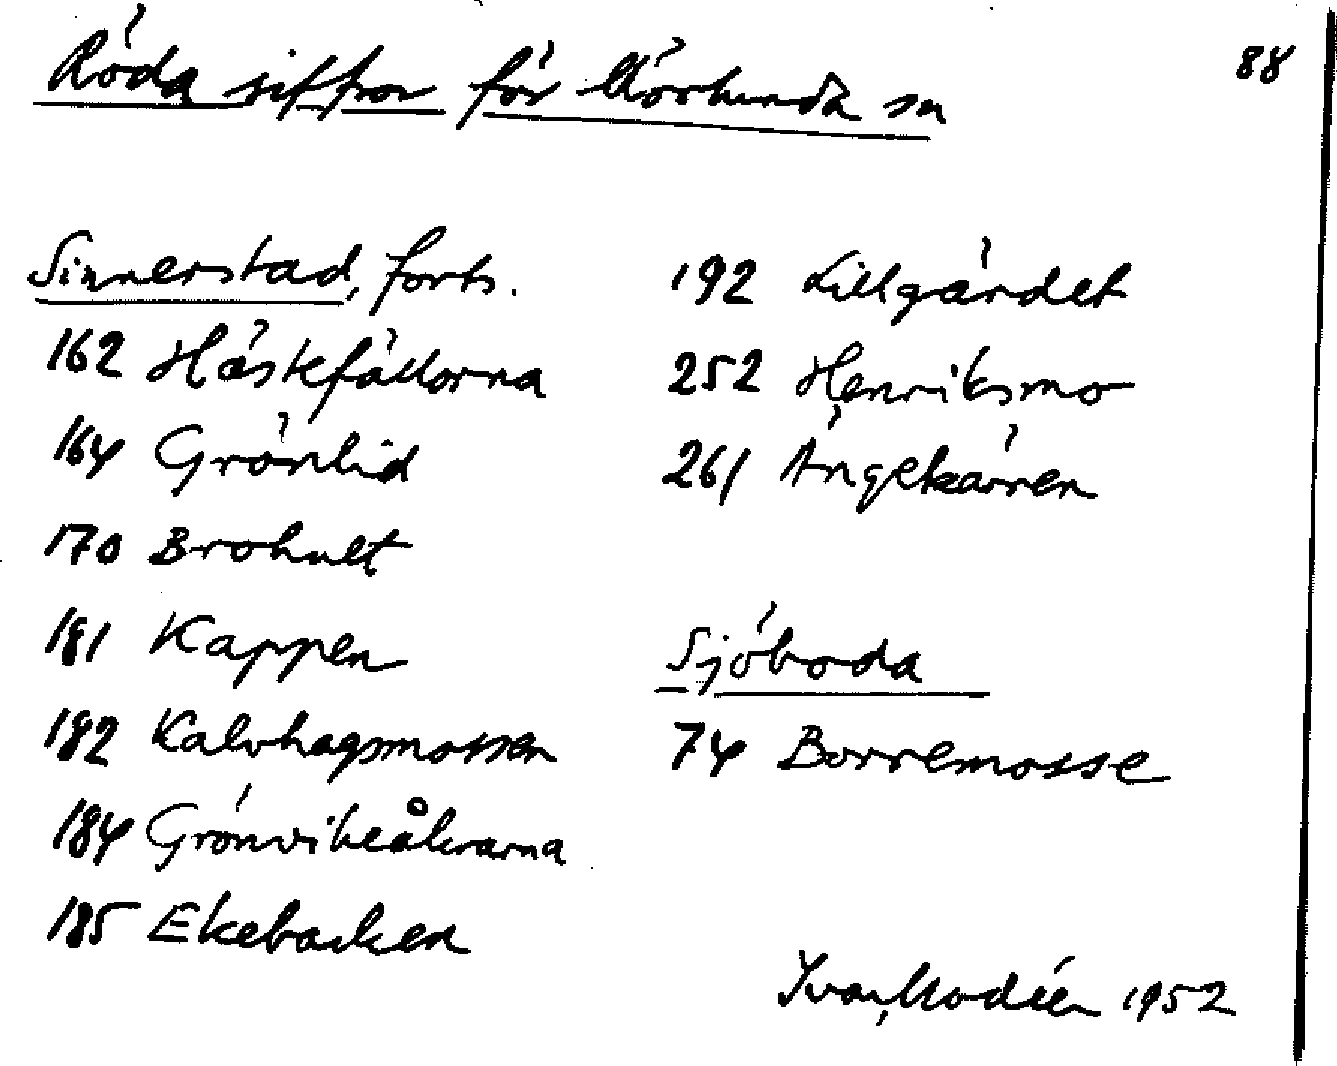 Röda siffror för Mörlunda sn
88
Sinnerstad, forts.
162 Hästefällorna
164 Grönlid
170 Brohult
181 Kappen
182 Kalvhagsmossen
184 Grönvikeåkrarna
185 Ekebacken
192 Lillgärdet
252 Henriksmo
261 Ängekärren
Sjöboda
74 Borremosse
Ivar Modéer 1952